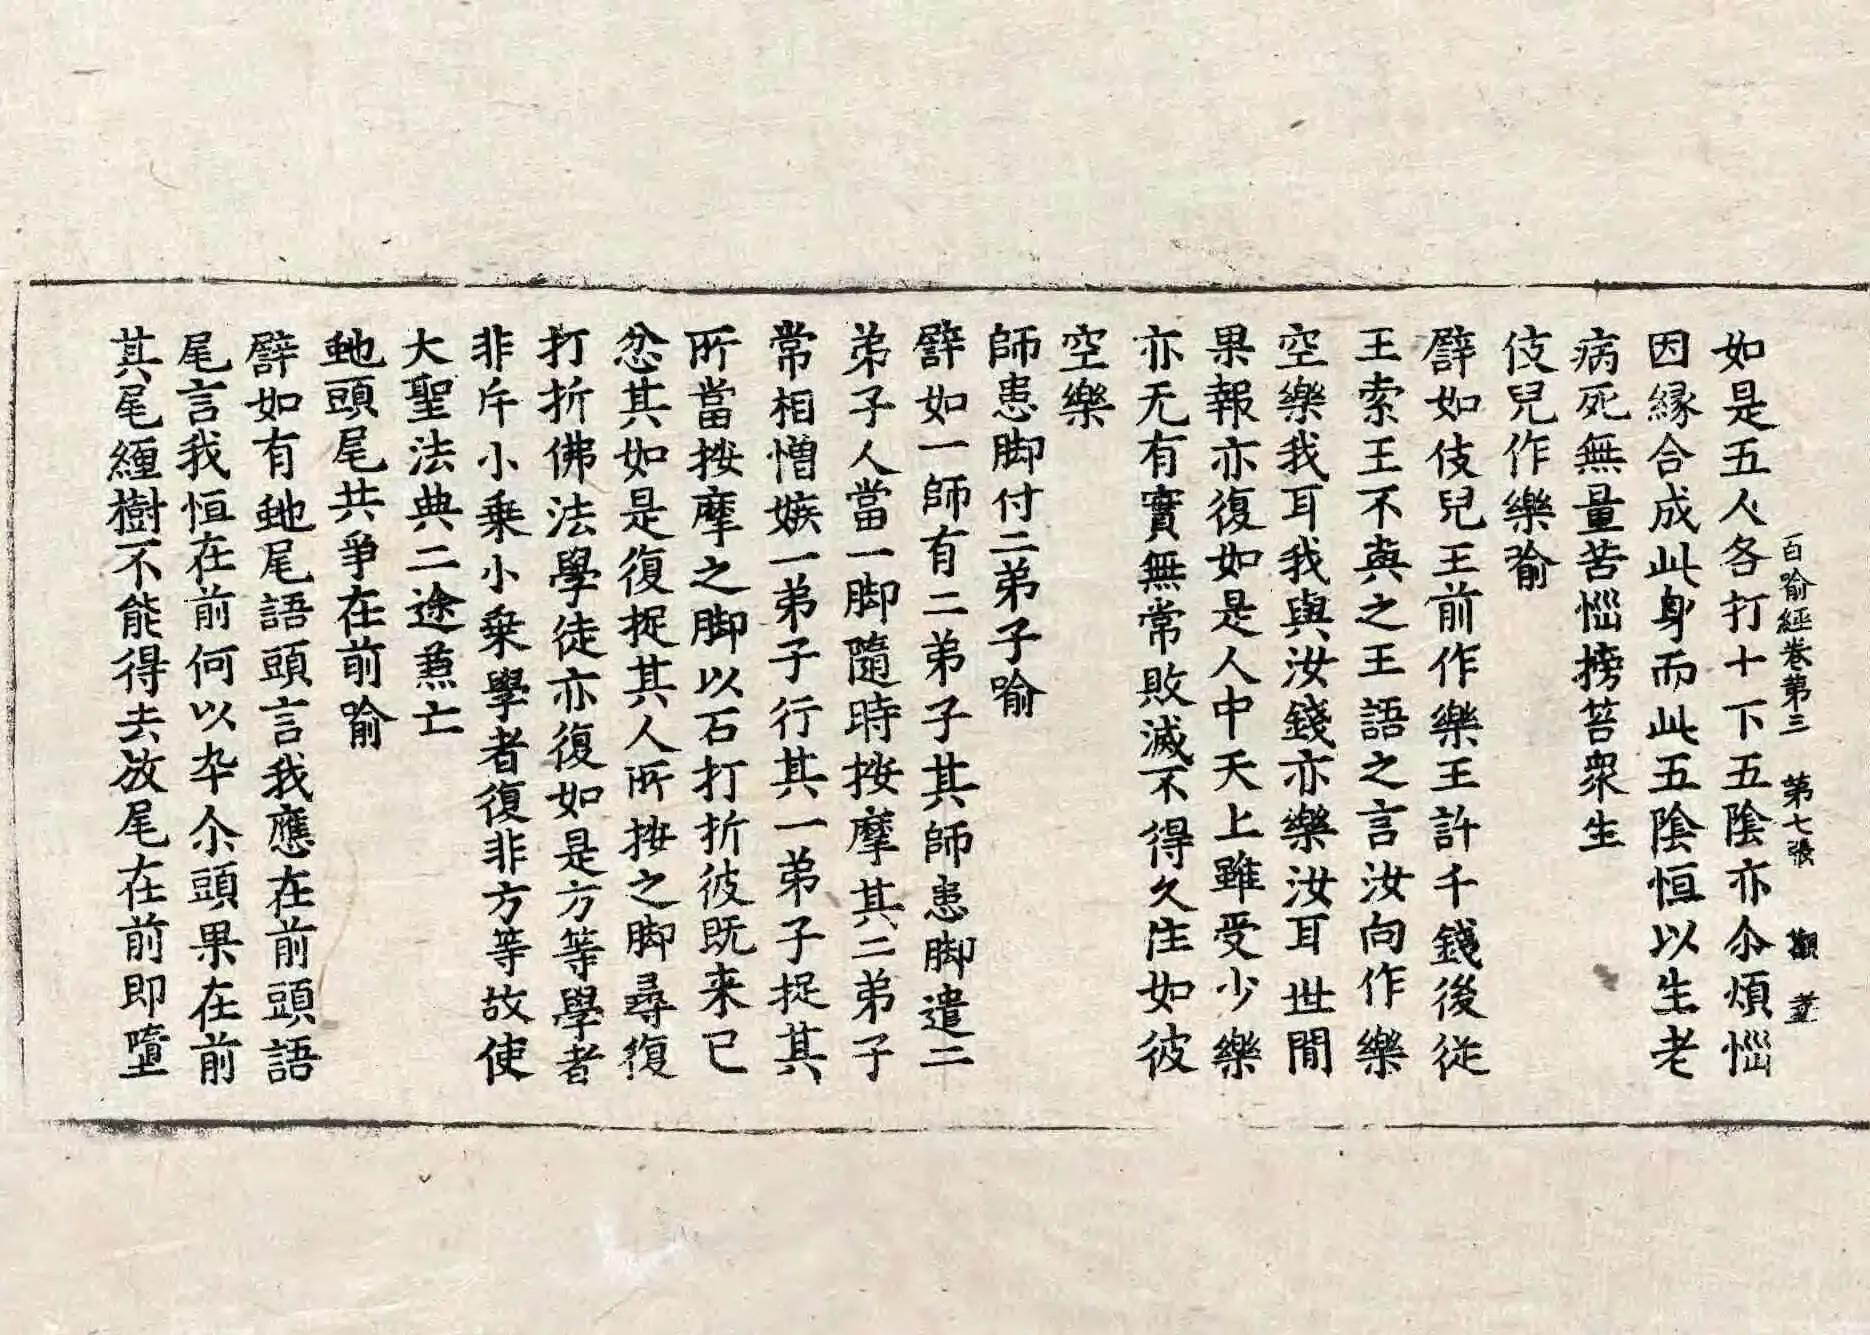 百喻經卷第三 第七張 觀
如是五人各打十下五陰亦尒煩惱
因緣合成此身而此五陰恒以生老
病死無量苦惱搒笞衆生
伎兒作樂喻
譬如伎兒王前作樂王許千錢後從
王索王不與之王語之言汝向作樂
空樂我耳我與汝錢亦樂汝耳世間
果報亦復如是人中天上雖受少樂
亦无有實無常敗滅不得久住如彼
空樂
師患脚付二弟子喻
譬如一師有二弟子其師患脚遣二
弟子人當一脚隨時按摩其二弟子
常相憎嫉一弟子行其一弟子捉其
所當按摩之脚以石打折彼既来已
忿其如是復捉其人所按之脚尋復
打折佛法學徒亦復如是方等學者
非斥小乗小乗學者復非方等故使
大聖法典二途兼亡
虵頭尾共爭在前喻
譬如有虵尾語頭言我應在前頭語
尾言我恒在前何以卒尒頭果在前
其尾纏樹不能得去放尾在前即墮